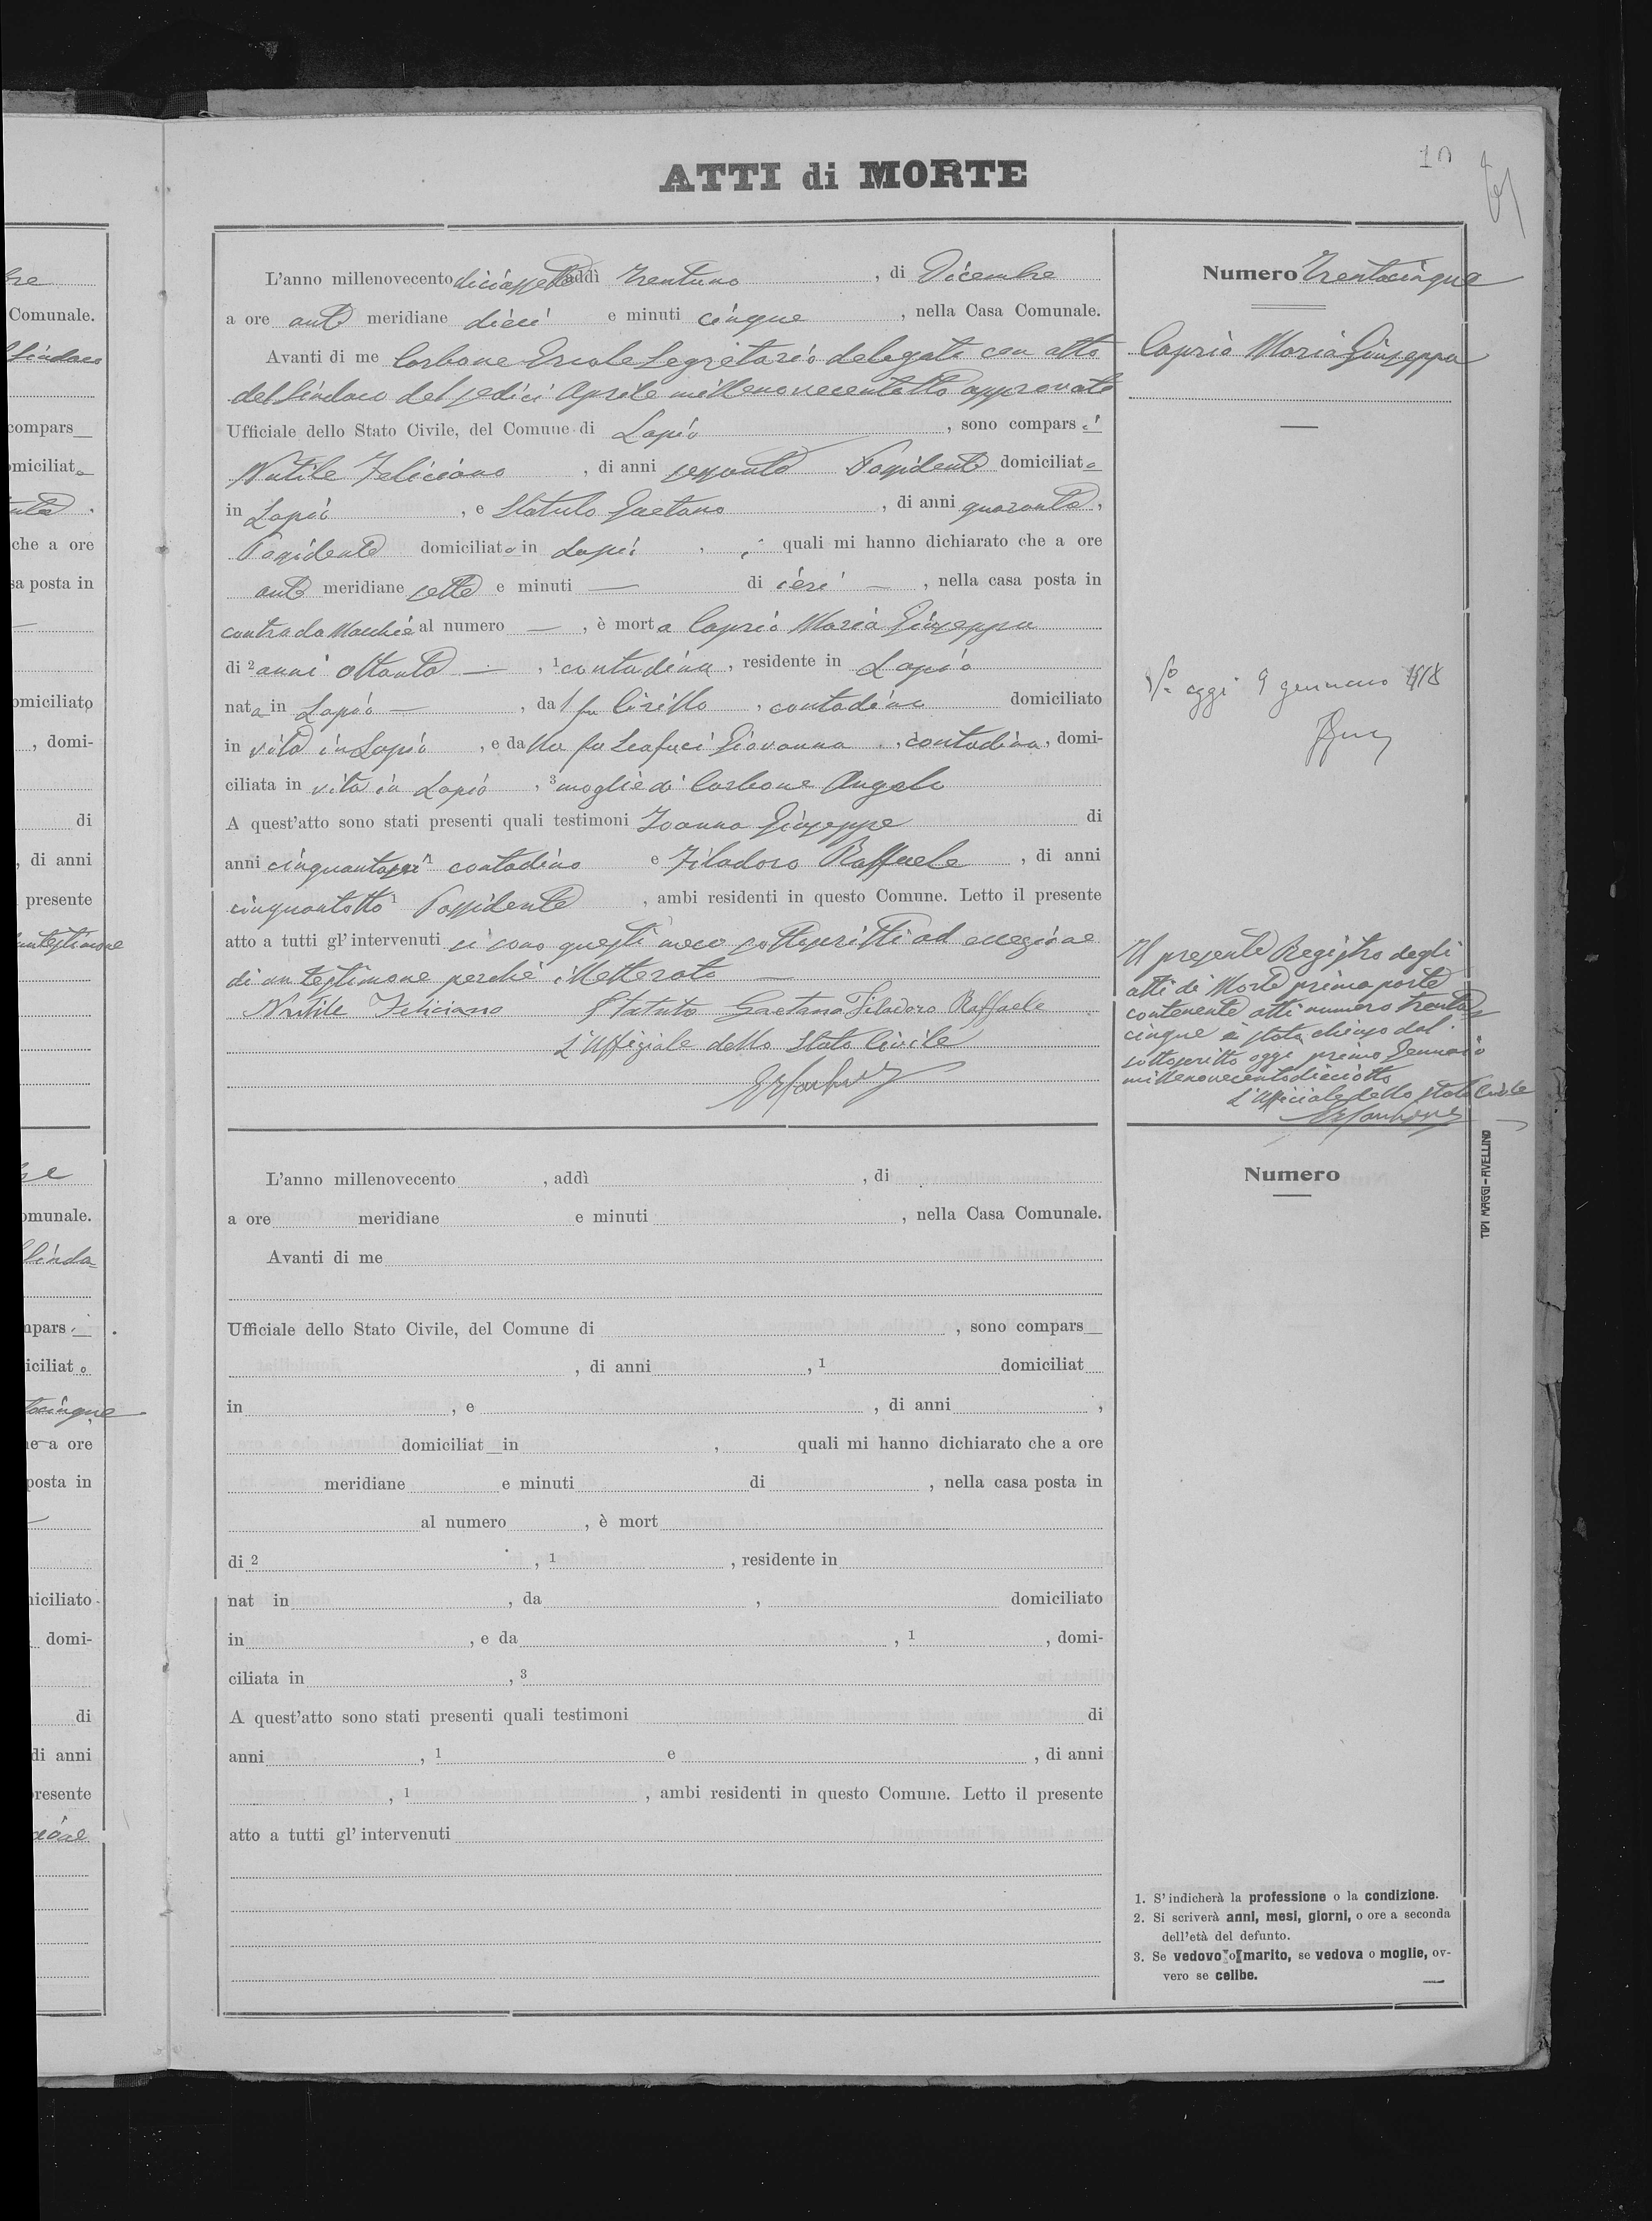 10
ATTI di MORTE
L'anno millenovecento diciassette addì trentuno, di Dicembre
a ore ant meridiane dieci e minuti cinque, nella Casa Comunale.
Avanti di me Carbone Ercole Segretario delegato con atto
del Sindaco del sedici Aprile millenovecentotto approvato
Ufficiale dello Stato Civile, del Comune di Lapio, sono compars i
Nutile Feliciano, di anni sessanta Possidente domiciliato
in Lapio, e Statuto Gaetano, di anni quaranta,
Possidente domiciliato in Lapio, i quali mi hanno dichiarato che a ore
ant meridiane sette e minuti — di ieri —, nella casa posta in
contrada Macchie al numero —, è morta Caprio Maria Giuseppa
di 2 anni ottanta —, 1 contadina, residente in Lapio
nata in Lapio —, dal fu Cirillo, contadino domiciliato
in vita in Lapio, e dalla fu Giovanna, contadina, domi-
ciliata in vita in Lapio, 3 moglie di Carbone Angelo
A quest'atto sono stati presenti quali testimoni Ioanna Giuseppe di
anni cinquantasei 1 contadino e Filadoro Raffaele, di anni
cinquantotto 1 Possidente, ambi residenti in questo Comune. Letto il presente
atto a tutti gl'intervenuti si sono questi meco sottoscritti ad eccezione
di un testimone perchè illetterato —
Nutile Feliciano Statuto Gaetano Filadoro Raffaele
L'Uffiziale dello Stato Civile
Numero Trentacinque
Caprio Maria Giuseppa
Vo oggi 9 gennaio 1918
Il presente Registro degli
atti di Morte prima parte
contenente atti numero trenta
cinque è stato chiuso dal
sottoscritto oggi primo Gennaio
millenovecentodiciotto
L'Ufficiale dello Stato Civile
L'anno millenovecento, addì, di
a ore meridiane e minuti, nella Casa Comunale.
Avanti di me
Ufficiale dello Stato Civile, del Comune di, sono compars
, di anni, 1 domiciliat
in, e, di anni,
domiciliat in, quali mi hanno dichiarato che a ore
meridiane e minuti di, nella casa posta in
al numero, è mort
di 2, 1, residente in
nat in, da, domiciliato
in, e da, 1, domi-
ciliata in, 3
A quest'atto sono stati presenti quali testimoni di
anni, 1 e, di anni
, 1, ambi residenti in questo Comune. Letto il presente
atto a tutti gl'intervenuti
Numero
TIPI MAGGI-AVELLINO
1. S'indicherà la professione o la condizione.
2. Si scriverà anni, mesi, giorni, o ore a seconda
dell'età del defunto.
3. Se vedovo o marito, se vedova o moglie, ov-
vero se celibe.